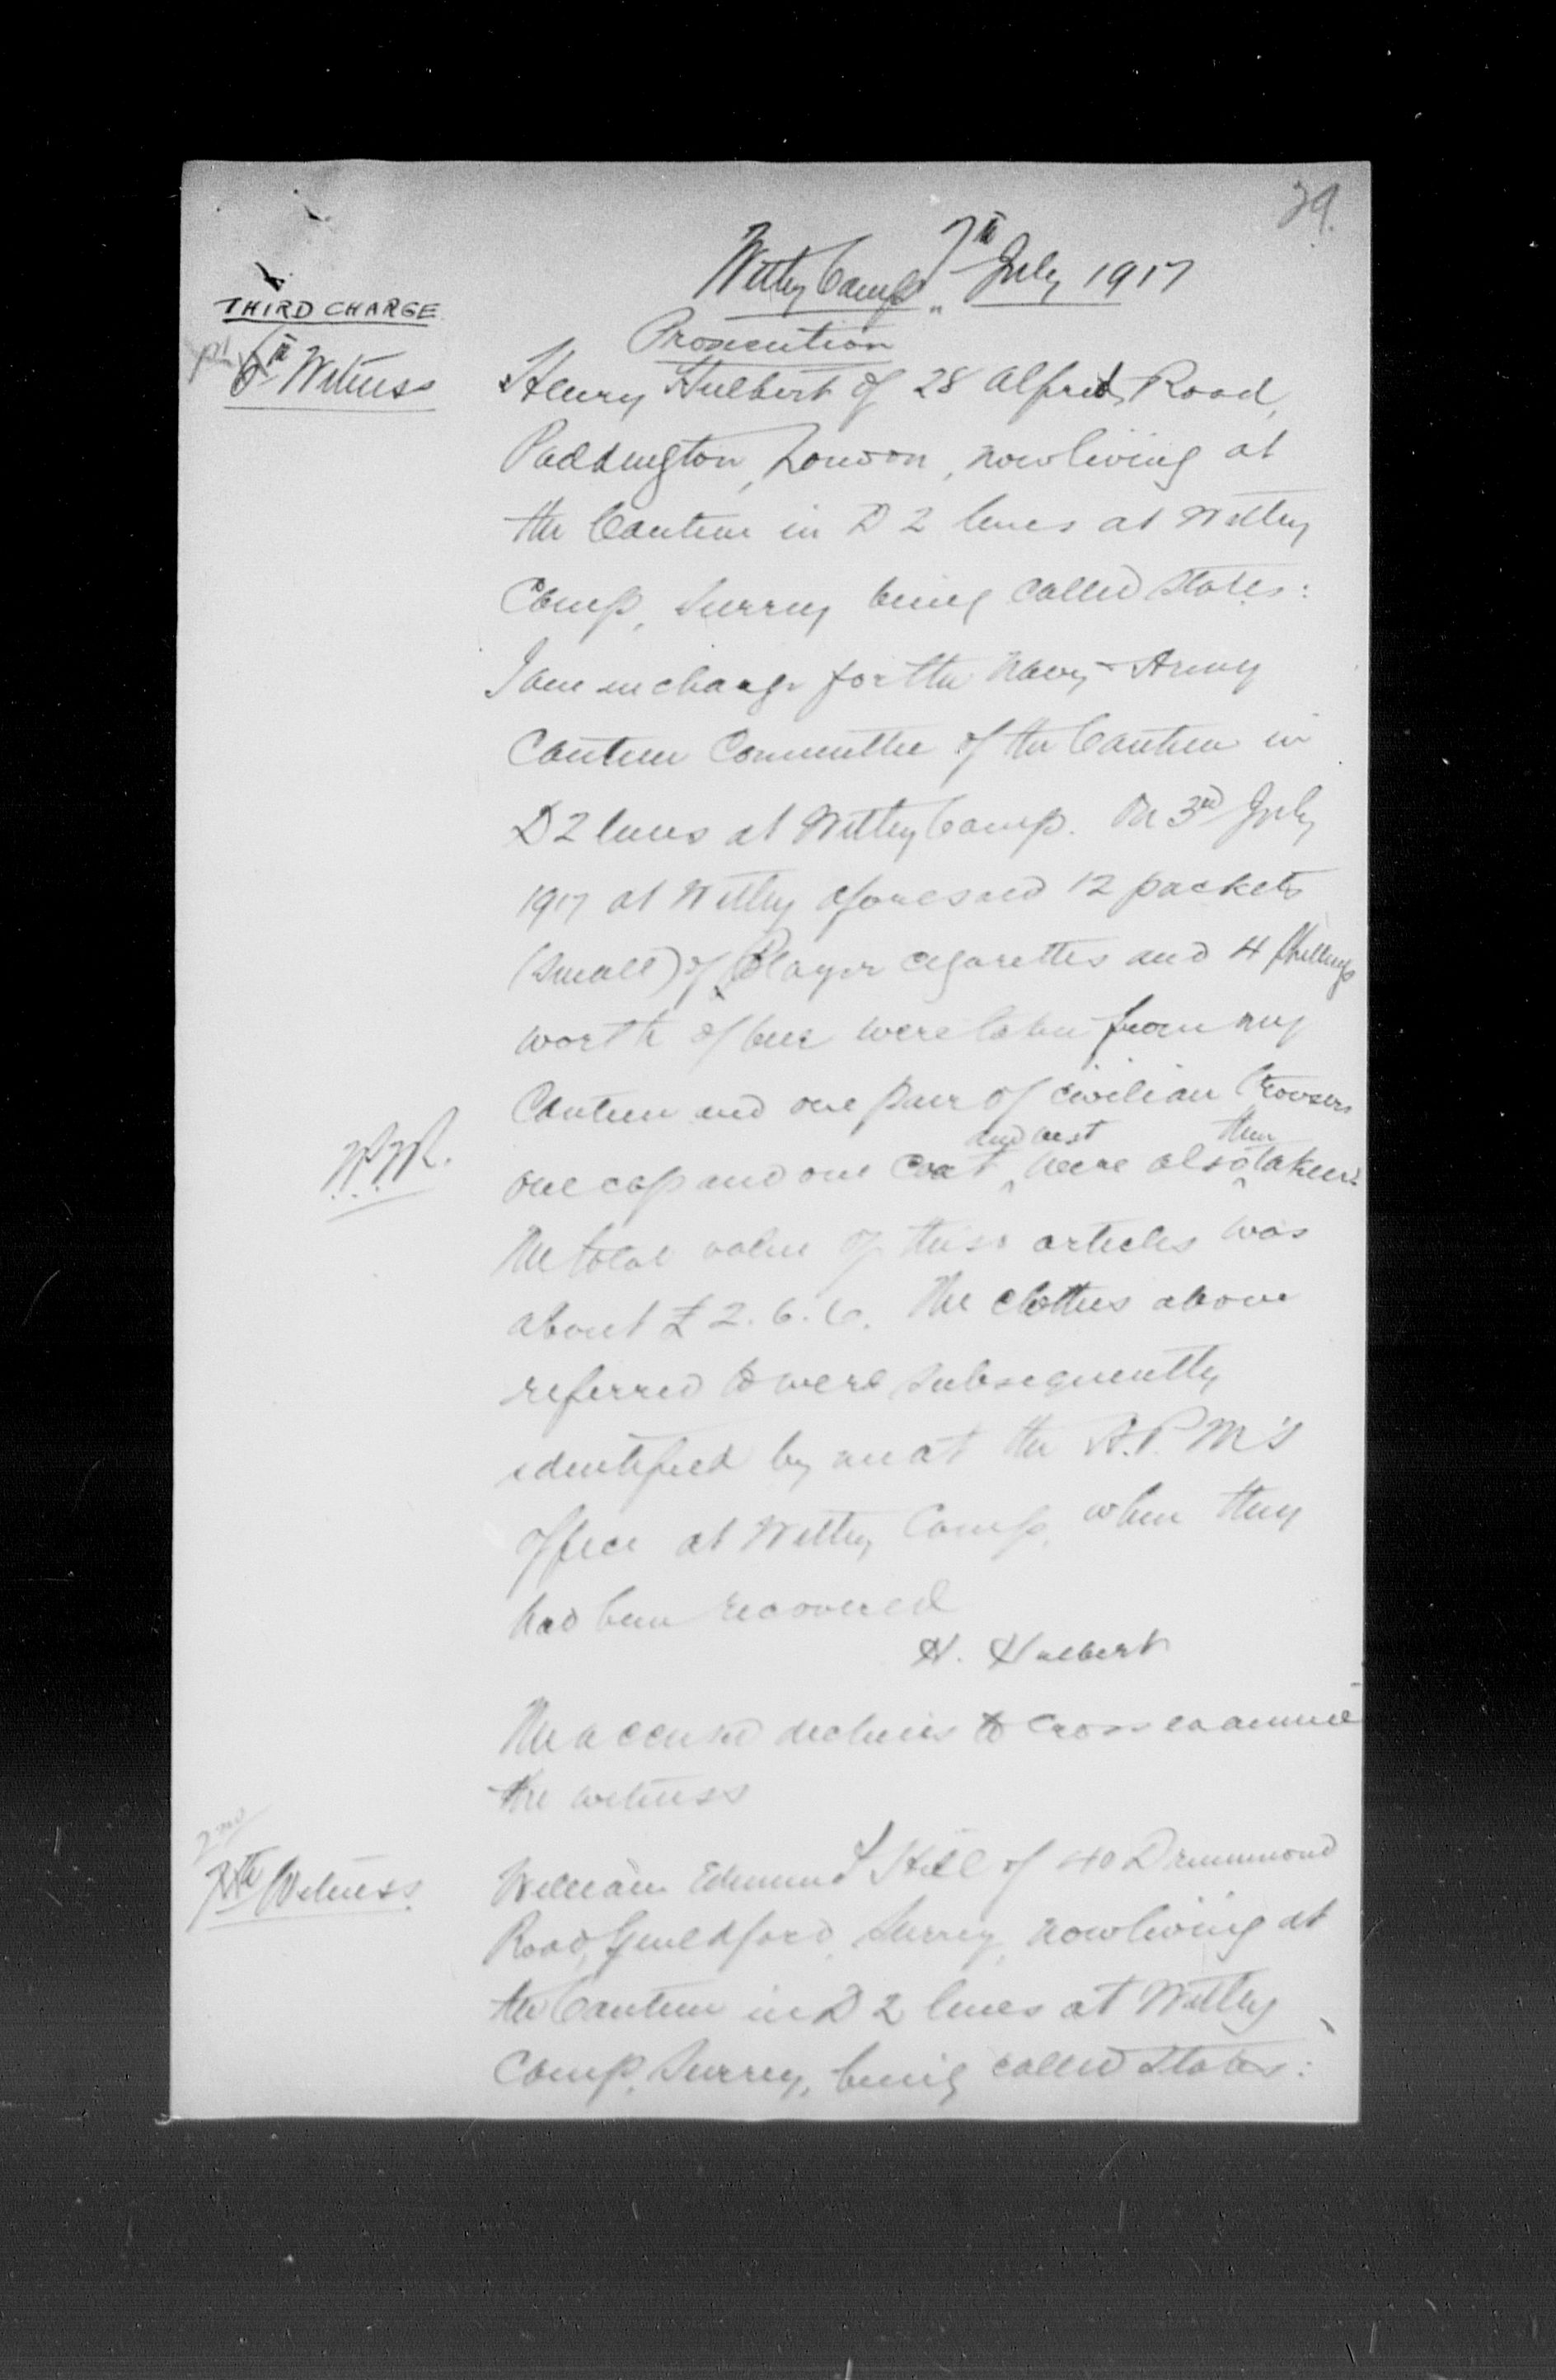 29.
Witley Camp, 7th July 1917
THIRD CHARGE
Prosecution
6th Witness
Henry Hulbert of 28 Alfred Road,
Paddington, London, now living at
the Canteen in D 2 lines at Witley
Camp, Surrey being called states:
I am in charge for the Navy & Army
Canteen Committee of the Canteen in
D 2 lines at Witley Camp. On 3rd July
1917 at Witley aforesaid 12 packets
(small) of Player cigarettes and 4 shillings
worth of beer were taken from my
Canteen and one pair of civilian trousers
and vest then
one cap and one coat were also taken.
The total value of these articles was
about £2.6.6. The clothes above
referred to were subsequently
identified by me at the A.P.M's
office at Witley Camp, when they
had been recovered
H. Hulbert
The accused declines to cross examine
the witness
2nd
7th Witness
William Edmund Hill of 40 Drummond
Road, Guildford, Surrey, now living at
the Canteen in D 2 lines at Witley
Camp, Surrey, being called states: